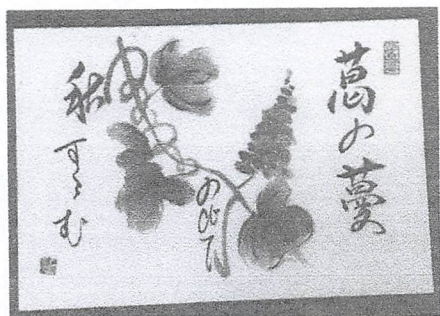 葛の蔓
のびて
秋すゝむ